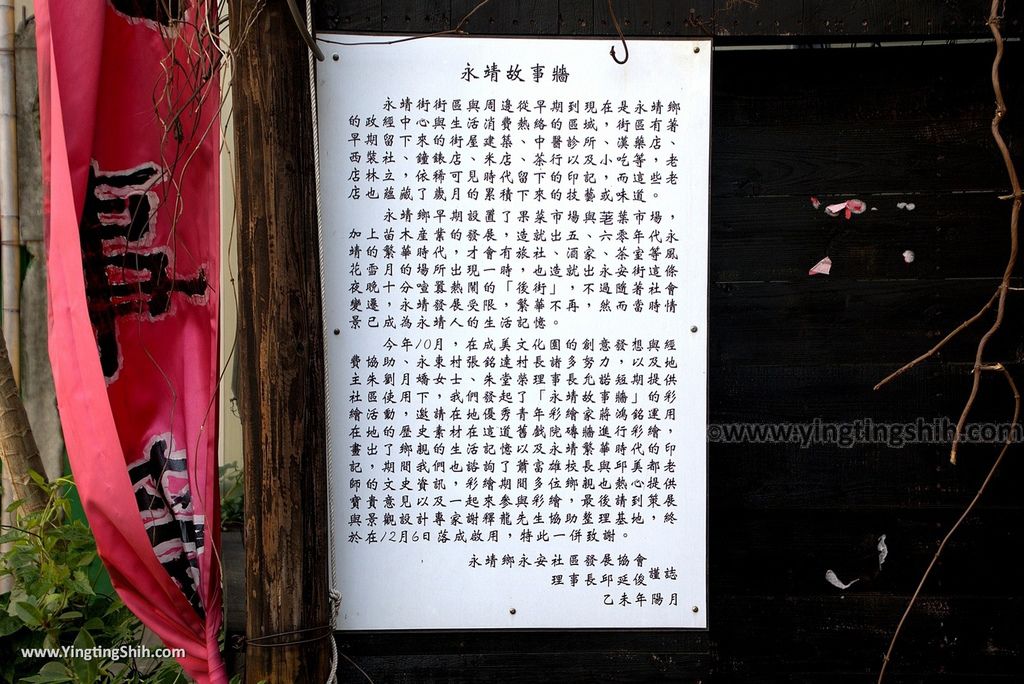 永靖故事牆
永靖街街區與周邊從早期到現在是永靖鄉
的政經中心與生活消費熱絡的區域，街區有著
早期留下來的街屋建築、中醫診所、漢藥店、
西裝社、鐘錶店、米店、茶行以及小吃等，老
店林立，依稀可見時代留下的印記，而這些老
店也蘊藏了歲月的累積下來的技藝或味道。
永靖鄉早期設置了果菜市場與荖葉市場，
加上苗木產業的發展，造就出五、六零年代永
靖的繁華時代，才會有旅社、酒家、茶室等風
花雪月的場所出現一時，也造就出永安街這條
夜晚十分喧囂熱鬧的「後街」，不過隨著社會
變遷，永靖發展受限，繁華不再，然而當時情
景已成為永靖人的生活記憶。
今年10月，在成美文化園的創意發想與經
費協助、永東村張銘達村長諸多努力，以及地
主朱劉月嬌女士、朱堂榮理事長允諾短期提供
社區使用下，我們發起了「永靖故事牆」的彩
繪活動，邀請在地優秀青年彩繪家蔣鴻銘運用
在地的歷史素材在這道舊戲院磚牆進行彩繪，
畫出了鄉親的生活記憶以及永靖繁華時代的印
記，期間我們也諮詢了蕭富雄校長與邱美都老
師的文史資訊，彩繪期間多位鄉親也熱心提供
寶貴意見以及一起來參與彩繪，最後請到策展
與景觀設計專家謝釋龍先生協助整理基地，終
於在12月6日落成啟用，特此一併致謝。
永靖鄉永安社區發展協會
理事長邱延俊謹誌
乙未年陽月
www.YingtingShih.com
©www.yingtingshih.com